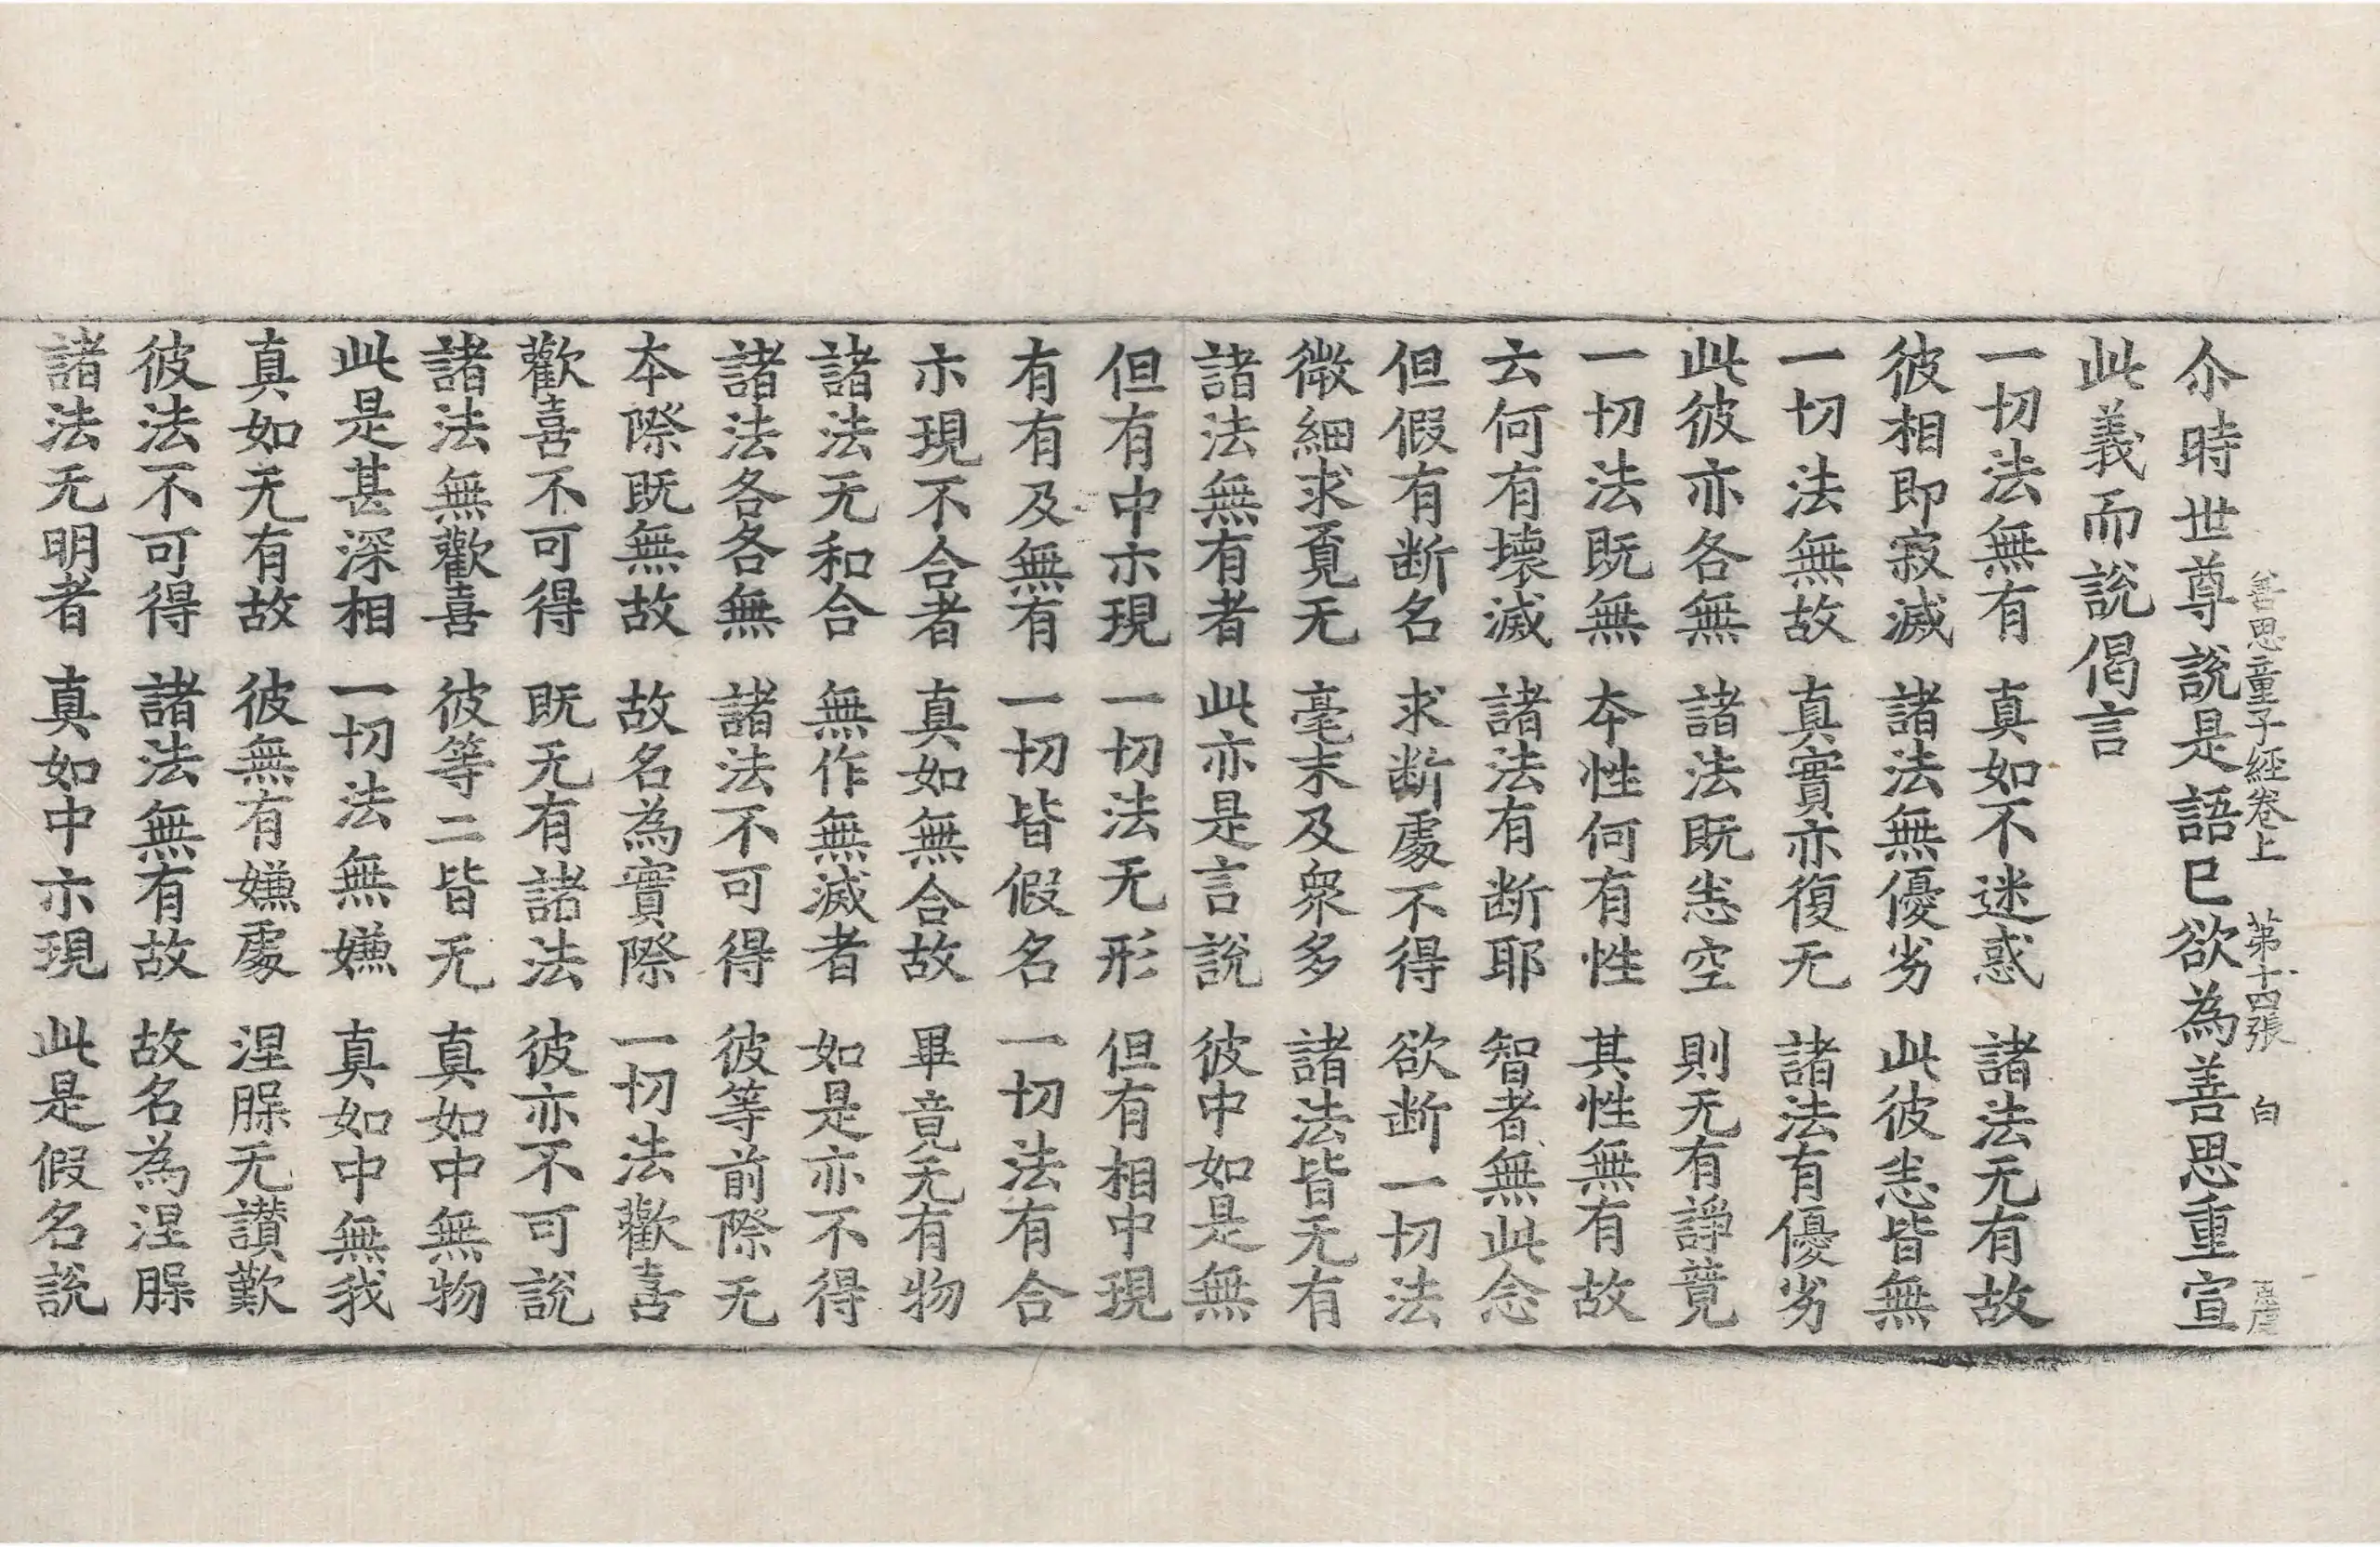 尒時世尊說是語已欲為善思重宣
善思童子經卷上 第十四張 白
此義而說偈言
一切法無有 真如不迷惑 諸法无有故
彼相即寂滅 諸法無優劣 此彼悉皆無
一切法無故 真實亦復无 諸法有優劣
此彼亦各無 諸法既悉空 則无有諍競
一切法既無 本性何有性 其性無有故
云何有壞滅 諸法有断耶 智者無此念
但假有断名 求断處不得 欲断一切法
微細求覓无 毫末及衆多 諸法皆无有
諸法無有者 此亦是言說 彼中如是無
但有中示現 一切法无形 但有相中現
有有及無有 一切皆假名 一切法有合
示現不合者 真如無合故 畢竟无有物
諸法无和合 無作無滅者 如是亦不得
諸法各各無 諸法不可得 彼等前際无
本際既無故 故名為實際 一切法歡喜
歡喜不可得 既无有諸法 彼亦不可說
諸法無歡喜 彼等二皆无 真如中無物
此是甚深相 一切法無嫌 真如中無我
真如无有故 彼無有嫌處 涅槃无讃歎
彼法不可得 諸法無有故 故名為涅槃
諸法无明者 真如中示現 此是假名說